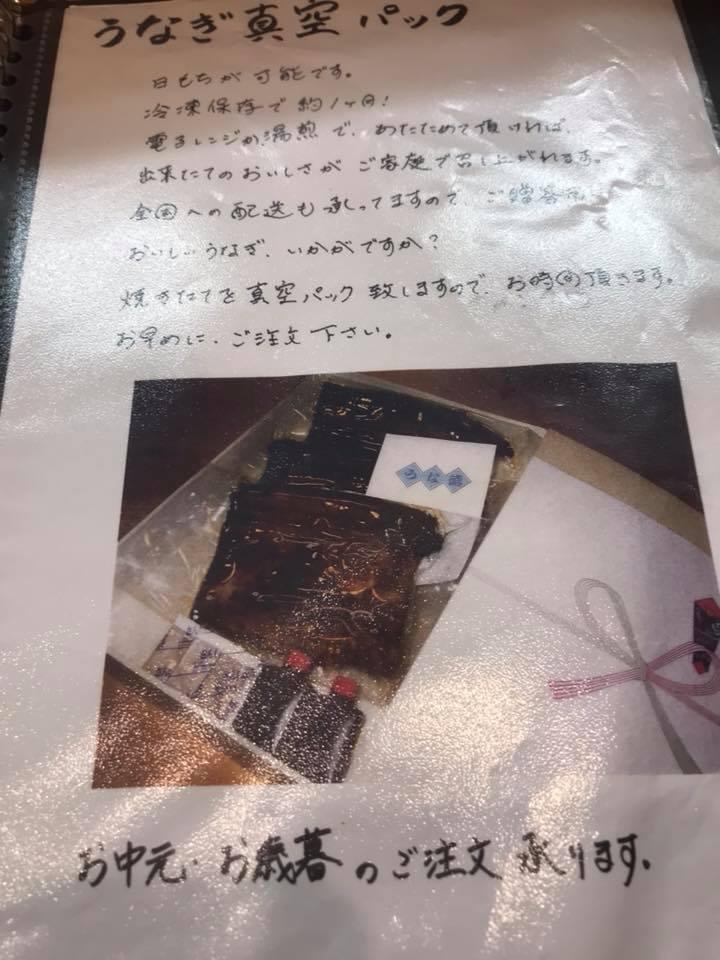 うなぎ真空パック
日もちが可能です。
冷凍保存で約1ヶ月!
電子レンジか湯煎で、あたためて頂ければ、
出来たてのおいしさがご家庭で召し上がれます。
全国への配送も承ってますので、ご贈答用に
おいしいうなぎ、いかがですか?
焼きたてを真空パック致しますので、お時間頂きます。
お早めに、ご注文下さい。
うな
お中元・お歳暮のご注文承ります。